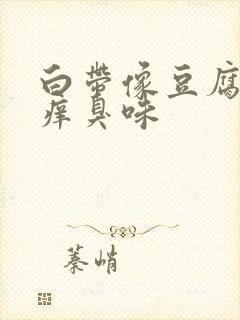 白带像豆腐
痒臭味
蓁峭